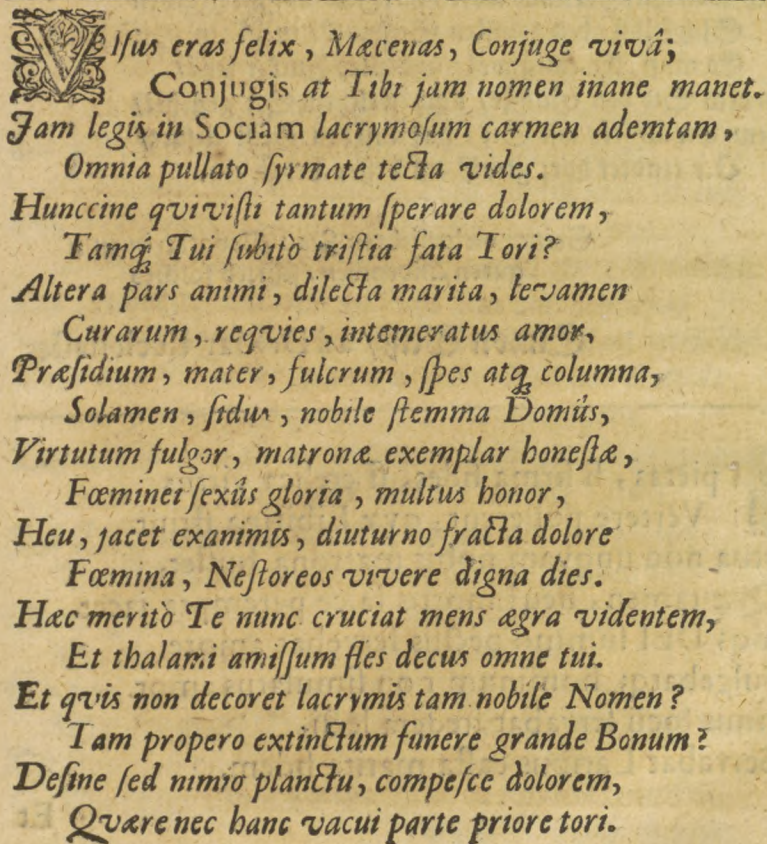 VIſus eras felix, Mæcenas, Conjuge vivâ;
Conjugis at Tibi jam nomen inane manet.
Jam legis in Sociam lacrymoſum carmen ademtam,
Omnia pullato ſyrmate tecta vides.
Hunccine qvivisti tantum ſperare dolorem,
Tamq́; Tui ſubitò triſtia fata Tori?
Altera pars animi, dilecta marita, levamen
Curarum, reqvies, intemeratus amor,
Præſidium, mater, fulcrum, ſpes atq; columna,
Solamen, ſidus, nobile ſtemma Domûs,
Virtutum fulgor, matronæ exemplar honeſtæ,
Fœminei ſexûs gloria, multus honor,
Heu, jacet exanimis, diuturno fracta dolore
Fœmina, Neſtoreos vivere digna dies.
Hæc meritò Te nunc cruciat mens ægra videntem,
Et thalami amiſſum fles decus omne tui.
Et qvis non decoret lacrymis tam nobile Nomen?
Tam propero extinctum funere grande Bonum?
Deſine ſed nimio planctu, compeſce dolorem,
Qvære nec hanc vacui parte priore tori.